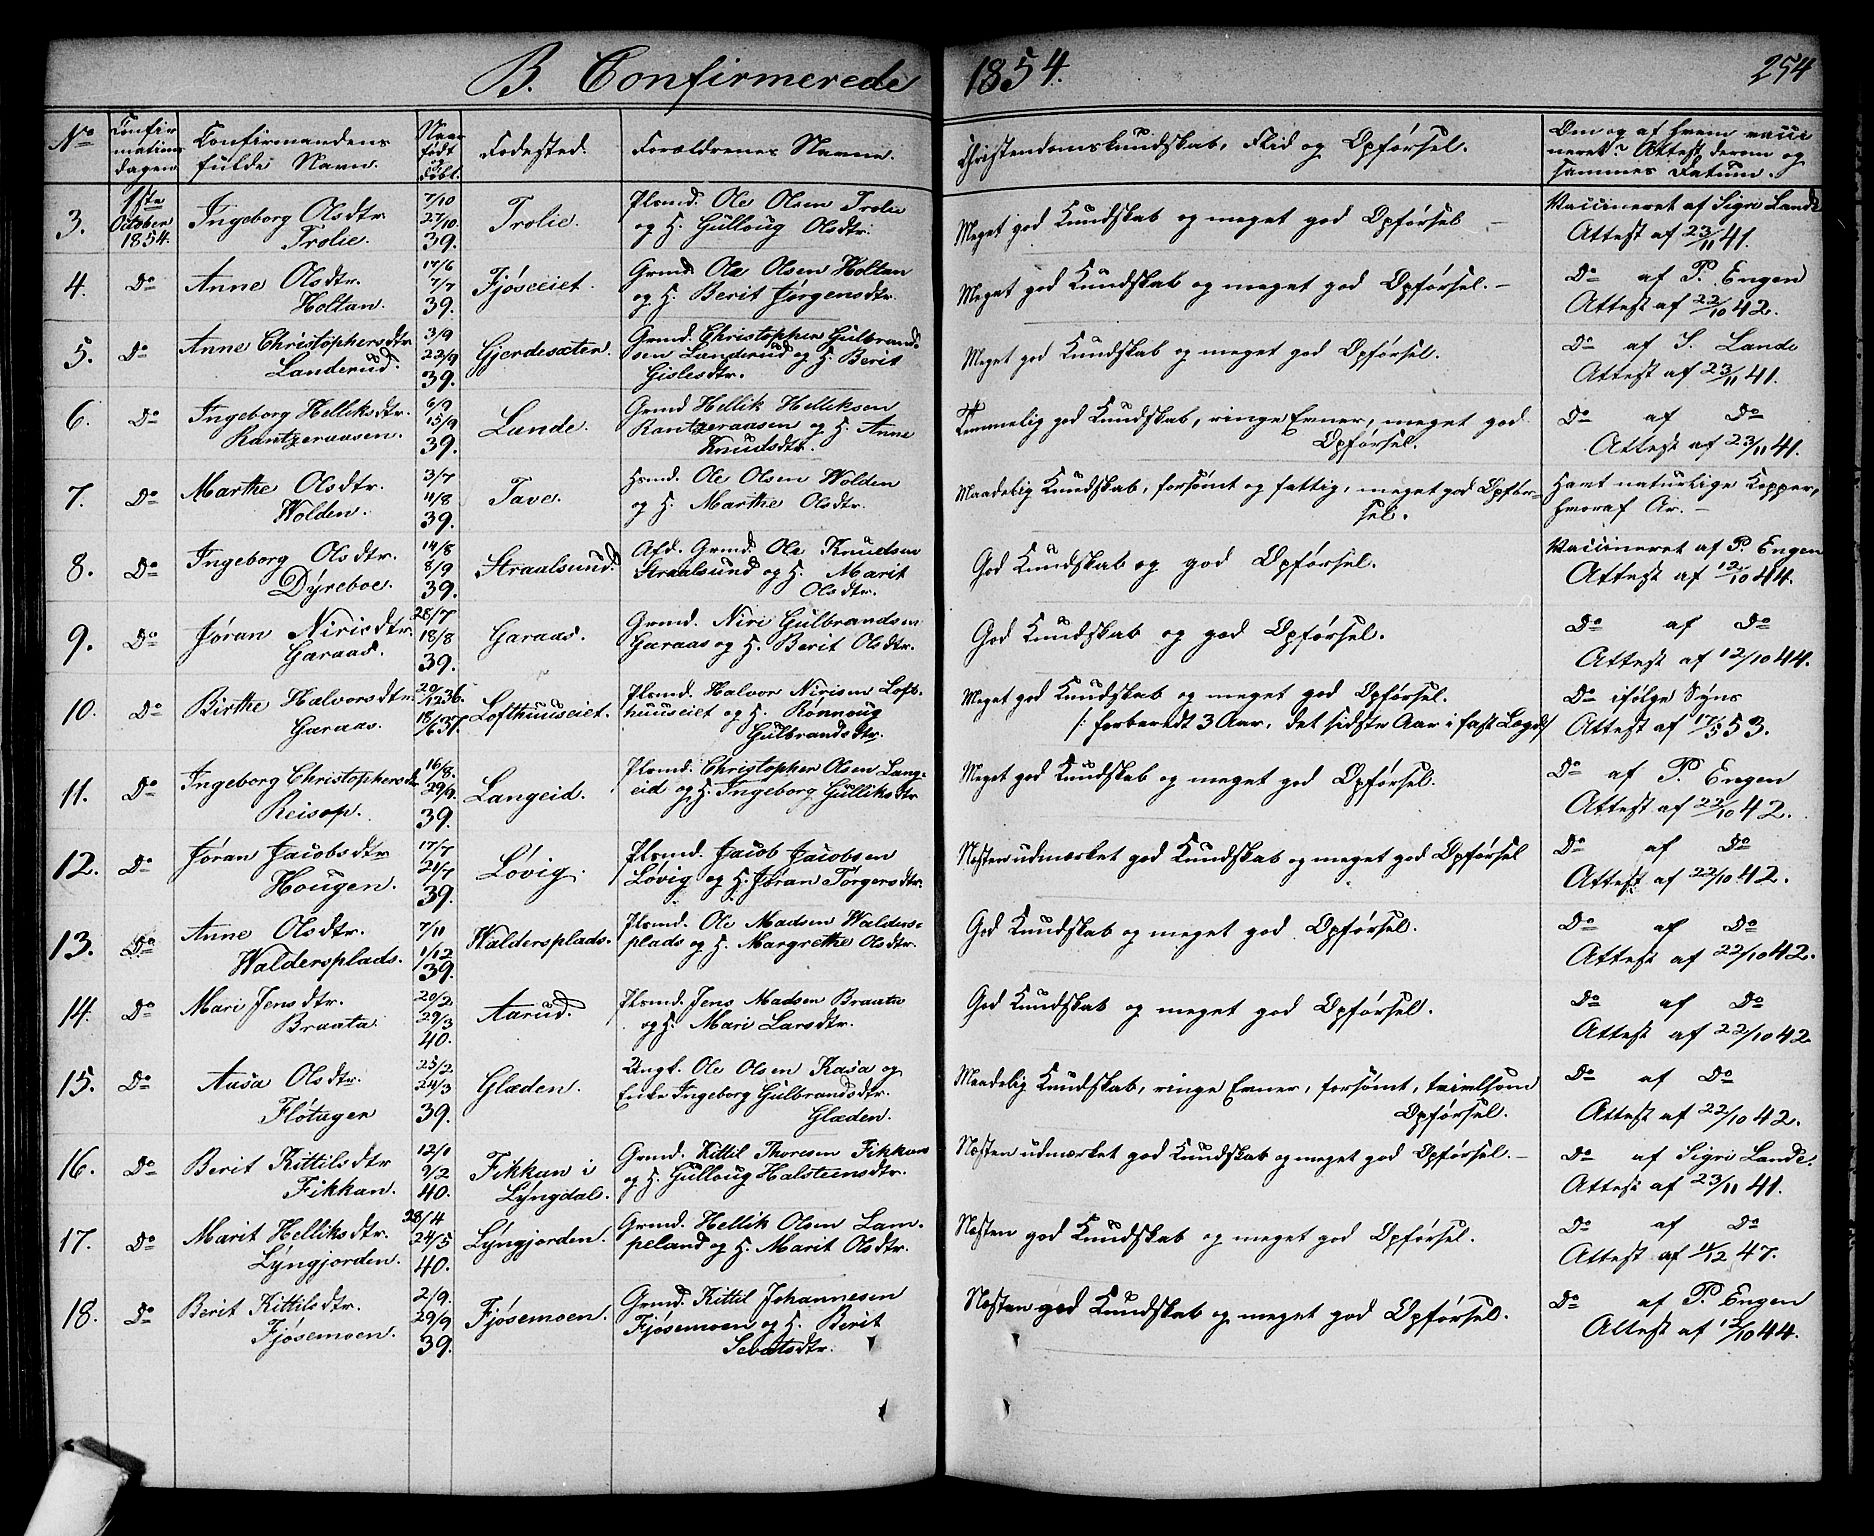 B. Confirmerede 1854. 254
No
Confir
mations
dagen
Confirmandens
fulde Navn.
Naar
født
og
døbt.
Fødested.
Forældrenes Navne.
Christendomskundskab, Flid og Opførsel.
Om og af hvem vacci
neret? Attest derom og
sammes Datum.
3.
1ste
October
1854.
Ingeborg Olsdtr.
Trolie.
7/10
27/10.
39.
Trolie.
Plsmd. Ole Olsen Trolie
og H. Gulloug Olsdtr.
Meget god Kundskab og meget god Opførsel —
Vaccineret af Sigri Lande
Attest af 23/11 41.
4.
Do
Anne Olsdtr.
Holtan.
17/6
7/7
39.
Fjøseeiet.
Grmd. Ole Olsen Holtan
og H. Berit Jørgensdtr.
Meget god Kundskab og meget god Opførsel. —
Do af P. Engen
Attest af 22/10 42.
5.
Do
Anne Christophersdtr
Landerud.
3/9
22/9
39.
Gjerdesæter.
Grmd. Christopher Gulbrand-
sen Landerud og H. Berit
Gislesdtr.
Meget god Kundskab og meget god Opførsel.
Do af S. Lande
Attest af 23/11 41.
6.
Do
Ingeborg Helliksdtr.
Rantzeraasen.
6/9
15/9
39.
Lande.
Grmd Hellik Helliksen
Rantzeraasen og H. Anne
Knudsdtr.
Temmelig god Kundskab, ringe Evner, meget god
Opførsel.
Do af Do
Attest af 23/11 41.
7.
Do
Marthe Olsdtr.
Wolden.
3/7
11/8
39.
Tave.
Hsmd. Ole Olsen Wolden
og H. Marthe Olsdtr.
Maadelig Kundskab, forsømt og fattig, meget god Opfør-
sel.
Havt naturlige Kopper,
hvoraf Ar. —
8.
Do
Ingeborg Olsdtr.
Dyreboe.
14/8
8/9
39.
Straalsund.
Afd. Grmd. Ole Knudsen
Straalsund og H. Marit
Olsdtr.
God Kundskab og god Opførsel.
Vaccineret af P. Engen
Attest af 12/10 44.
9.
Do
Jøran Nirisdtr.
Garaas.
28/7
18/8
39.
Garaas.
Grmd. Niri Gulbrandsen
Garaas og H. Berit Olsdtr.
God Kundskab og god Opførsel.
Do af Do
Attest af 12/10 44.
10.
Do
Birthe Halvorsdtr.
Garaas.
20/12 36.
18/6 37.
Lofthuuseiet.
Plsmd. Halvor Nirisen Loft-
huuseiet og H. Rønnoug
Gulbrandsdtr.
Meget god Kundskab og meget god Opførsel.
/: forberedt 3 Aar, det sidste Aar i fast Lægd :/
Do ifølge Syns
Attest af 17/5 53.
11.
Do
Ingeborg Christophersdtr
Reisop.
16/8.
29/9.
39.
Langeid.
Plsmd. Christopher Olsen Lang-
eid og H. Ingeborg Gulliksdtr
Meget god Kundskab og meget god Opførsel.
Do af P. Engen
Attest af 22/10 42.
12.
Do
Jøran Jacobsdtr
Hougen.
17/7
21/7
39.
Løvig.
Plsmd. Jacob Jacobsen
Løvig og H. Jøran Torgersdtr.
Næsten udmærket god Kundskab og meget god Opførsel
Do af Do
Attest af 22/10 42.
13.
Do
Anne Olsdtr.
Waldersplads.
7/11
1/12
39.
Waldersplads.
Plsmd. Ole Madsen Walders-
plads og H. Margrethe Olsdtr.
God Kundskab og meget god Opførsel.
Do af Do
Attest af 22/10 42.
14.
Do
Mari Jensdtr.
Braata.
20/2.
29/3
40.
Aarud.
Plsmd. Jens Madsen Braata
og H. Mari Larsdtr.
God Kundskab og meget god Opførsel.
Do af Do
Attest af 22/10 42.
15.
Do
Aasa Olsdtr.
Fløtager
25/2.
24/3
39.
Glæden.
Ungk. Ole Olsen Kasa og
Enke Ingeborg Gulbrandsdtr.
Glæden.
Maadelig Kundskab, ringe Evner, forsømt, tvivlsom
Opførsel.
Do af Do
Attest af 22/10 42.
16.
Do
Berit Kittilsdtr
Fikkan.
12/1
9/2
40.
Fikkan i
Lyngdal.
Grmd. Kittil Thoresen Fikkan
og H. Gulloug Halsteensdtr.
Næsten udmærket god Kundskab og meget god Opførsel. —
Do af Sigri Lande.
Attest af 23/11 41.
17.
Do
Marit Helliksdtr.
Lyngjorden.
28/4
24/5
40.
Lyngjorden.
Grmd. Hellik Olsen Lam-
peland og H. Marit Olsdtr.
Næsten god Kundskab og meget god Opførsel.
Do af Do
Attest af 11/12 47.
18.
Do
Berit Kittilsdtr.
Fjøsemoen.
2/9.
29/9
39.
Fjøsemoen.
Grmd. Kittil Johannesen
Fjøsemoen og H. Berit
Sebatsdtr.
Næsten god Kundskab og meget god Opførsel.
Do af P. Engen
Attest af 12/10 44.